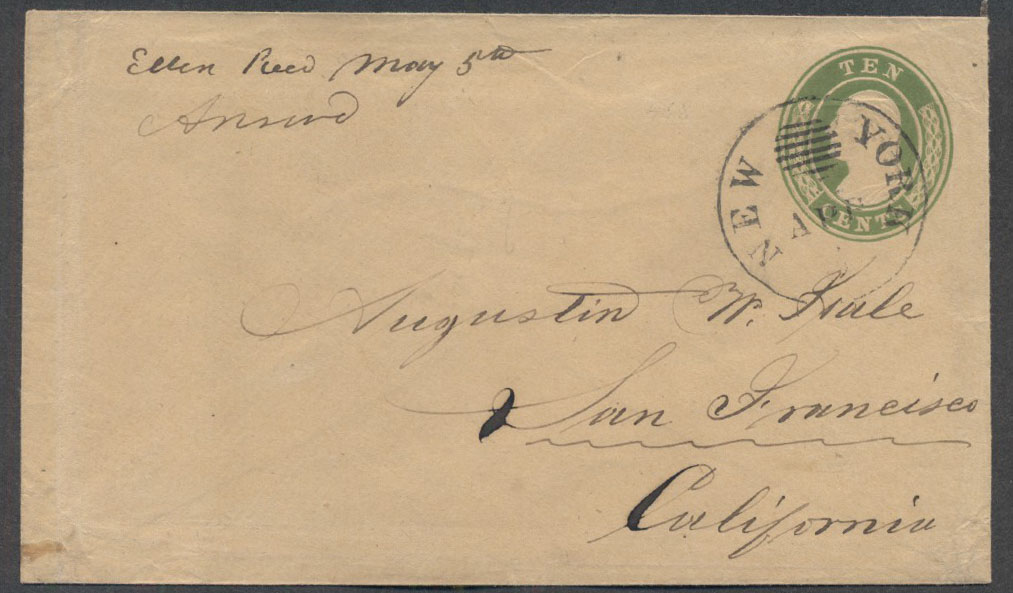 Ellen Reed May 5th
Answrd
TEN
CENTS
NEW YORK
Augustin W. Hale
San Francisco
California